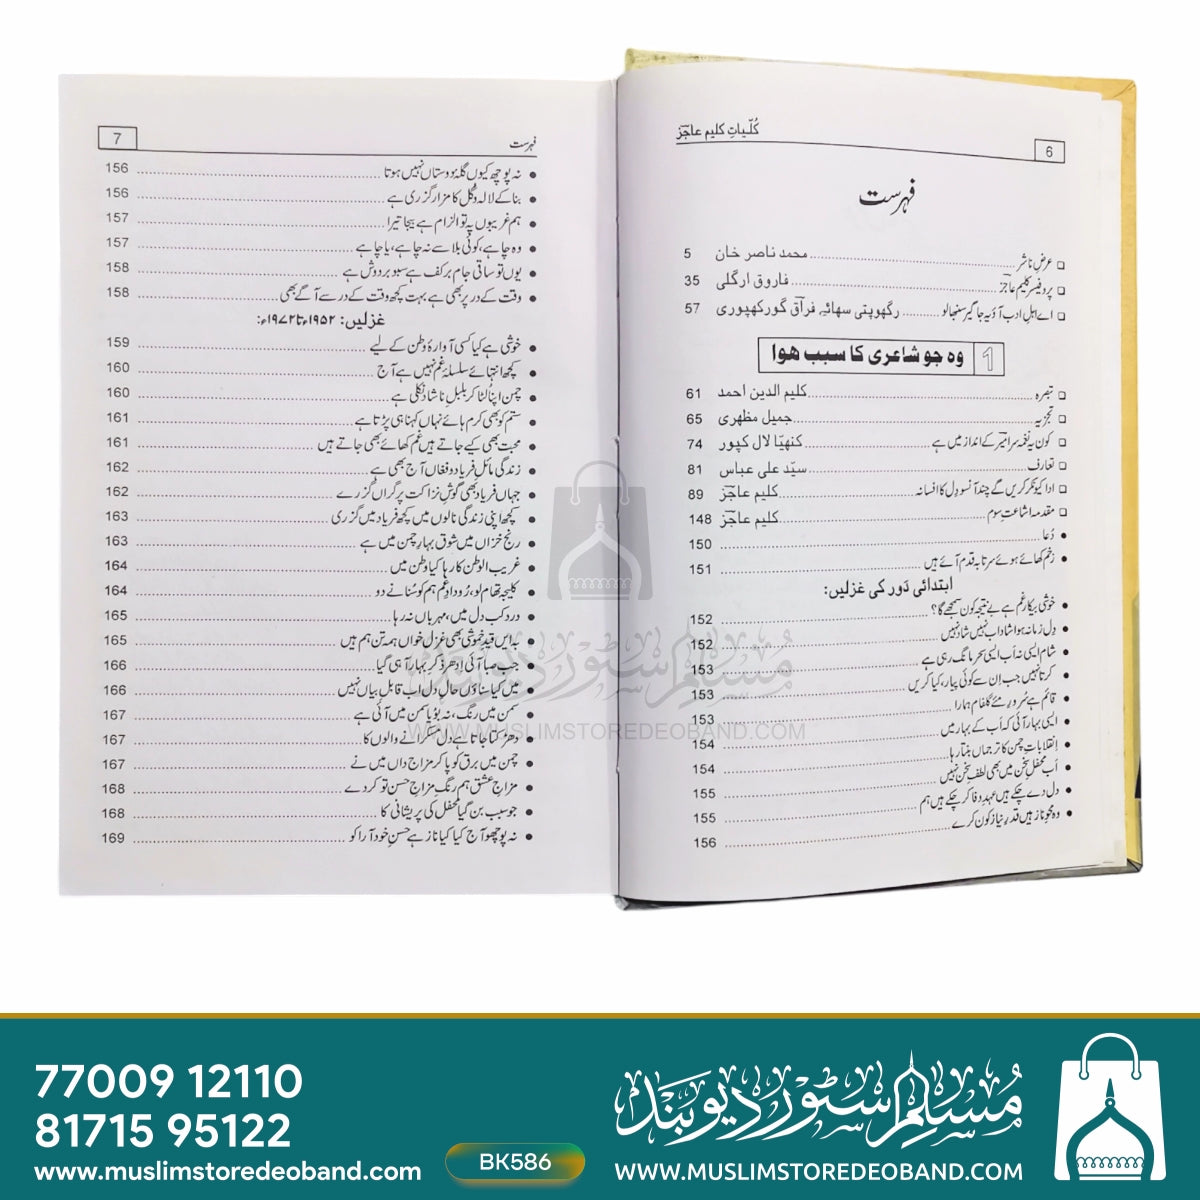 کُلّیاتِ کلیم عاجزؔ
6
فہرست
عرضِ ناشر ... محمد ناصر خان 5
پروفیسر کلیم عاجزؔ ... فاروق ارگلی 35
اے اہلِ ادب آؤ یہ جاگیر سنبھالو ... رگھوپتی سہائے فراقؔ گورکھپوری 57
1 وہ جو شاعری کا سبب ہوا
تبصرہ ... کلیم الدین احمد 61
تجزیہ ... جمیل مظہری 65
کون یہ نغمہ سرا میرؔ کے انداز میں ہے ... کنھیّا لال کپور 74
تعارف ... سیّد علی عباس 81
ادا کیونکر کریں گے چند آنسو دل کا افسانہ ... کلیم عاجزؔ 89
مقدمہ اشاعتِ سوم ... کلیم عاجزؔ 148
دُعا ... 150
زخم کھائے ہوئے سر تا بہ قدم آئے ہیں ... 151
ابتدائی دَور کی غزلیں:
خوشی بیکار غم ہے بے نتیجہ کون سمجھے گا؟ ... 152
دِل زمانہ ہوا شاداب نہیں شاد نہیں ... 152
شام ایسی نہ اَب ایسی سحر مانگ رہی ہے ... 153
کرتا نہیں جب اِن سے کوئی پیار، کیا کریں ... 153
قائم ہے سُرورِ مئے گلفام ہمارا ... 153
ایسی بہار آئی کہ اَب کے بہار میں ... 154
اِنقلاباتِ چمن کا ترجماں بنتا رہا ... 154
اَب محفلِ سخن میں بھی لطفِ سخن نہیں ... 155
دل دے چکے ہیں عہدِ وفا کر چکے ہیں ہم ... 155
وہ محوِ ناز ہیں قدرِ نیاز کون کرے ... 156
فہرست
7
نہ پوچھ کیوں گلۂ دوستاں نہیں ہوتا ... 156
بنا کے لالہ و گل کا مزار گزری ہے ... 156
ہم غریبوں پہ تو الزام ہے بیجا تیرا ... 157
وہ چاہے، کوئی بلا سے نہ چاہے، یا چاہے ... 157
یوں تو ساقی جام برکف ہے سبو بردوش ہے ... 158
وقت کے در پر بھی ہے بہت کچھ وقت کے در سے آگے بھی ... 158
غزلیں: ۱۹۵۲ء تا ۱۹۷۲ء:
خوشی ہے کیا کسی آوارۂ وطن کے لیے ... 159
کچھ انتہائے سلسلۂ غم نہیں ہے آج ... 160
چمن اپنا لٹا کر بلبلِ ناشاد نکلی ہے ... 160
ستم کو بھی کرم ہائے نہاں کہنا ہی پڑتا ہے ... 161
محبت بھی کیے جاتے ہیں غم کھائے بھی جاتے ہیں ... 161
زندگی مائل فریاد و فغاں آج بھی ہے ... 162
جہاں فریاد بھی گوشِ نزاکت پر گراں گزرے ... 162
کچھ اپنی زندگی نالوں میں کچھ فریاد میں گزری ... 163
رنج خزاں میں شوق بہارِ چمن میں ہے ... 163
غریب الوطن کا رہا کیا وطن میں ... 164
کلیجہ تھام لو، رُودادِ غم ہم کو سُنانے دو ... 164
دردِ کب دل میں، مہرباں نہ رہا ... 165
بہ ایں قیدِ خموشی بھی غزل خواں ہمہ تن ہم ہیں ... 165
جب صبا آئی اِدھر ذکرِ بہار آہی گیا ... 166
میں کیا سناؤں حالِ دل اب قابلِ بیاں نہیں ... 166
سمن میں رنگ، نہ بُو یاسمن میں آئی ہے ... 167
دھڑکتا جاتا ہے دل مسکرانے والوں کا ... 167
چمن میں برق کو پا کر مزاج داں میں نے ... 167
مزاجِ عشق ہم رنگِ مزاجِ حسن تو کر دے ... 168
جو سبب بن گیا محفل کی پریشانی کا ... 168
نہ پوچھو آج کیا کیا ناز ہے حُسنِ خود آرا کو ... 169
مُسلم سٹور دیوبند
WWW.MUSLIMSTOREDEOBAND.COM
77009 12110
81715 95122
www.muslimstoredeoband.com
BK586
مُسلم سٹور دیوبند
WWW.MUSLIMSTOREDEOBAND.COM